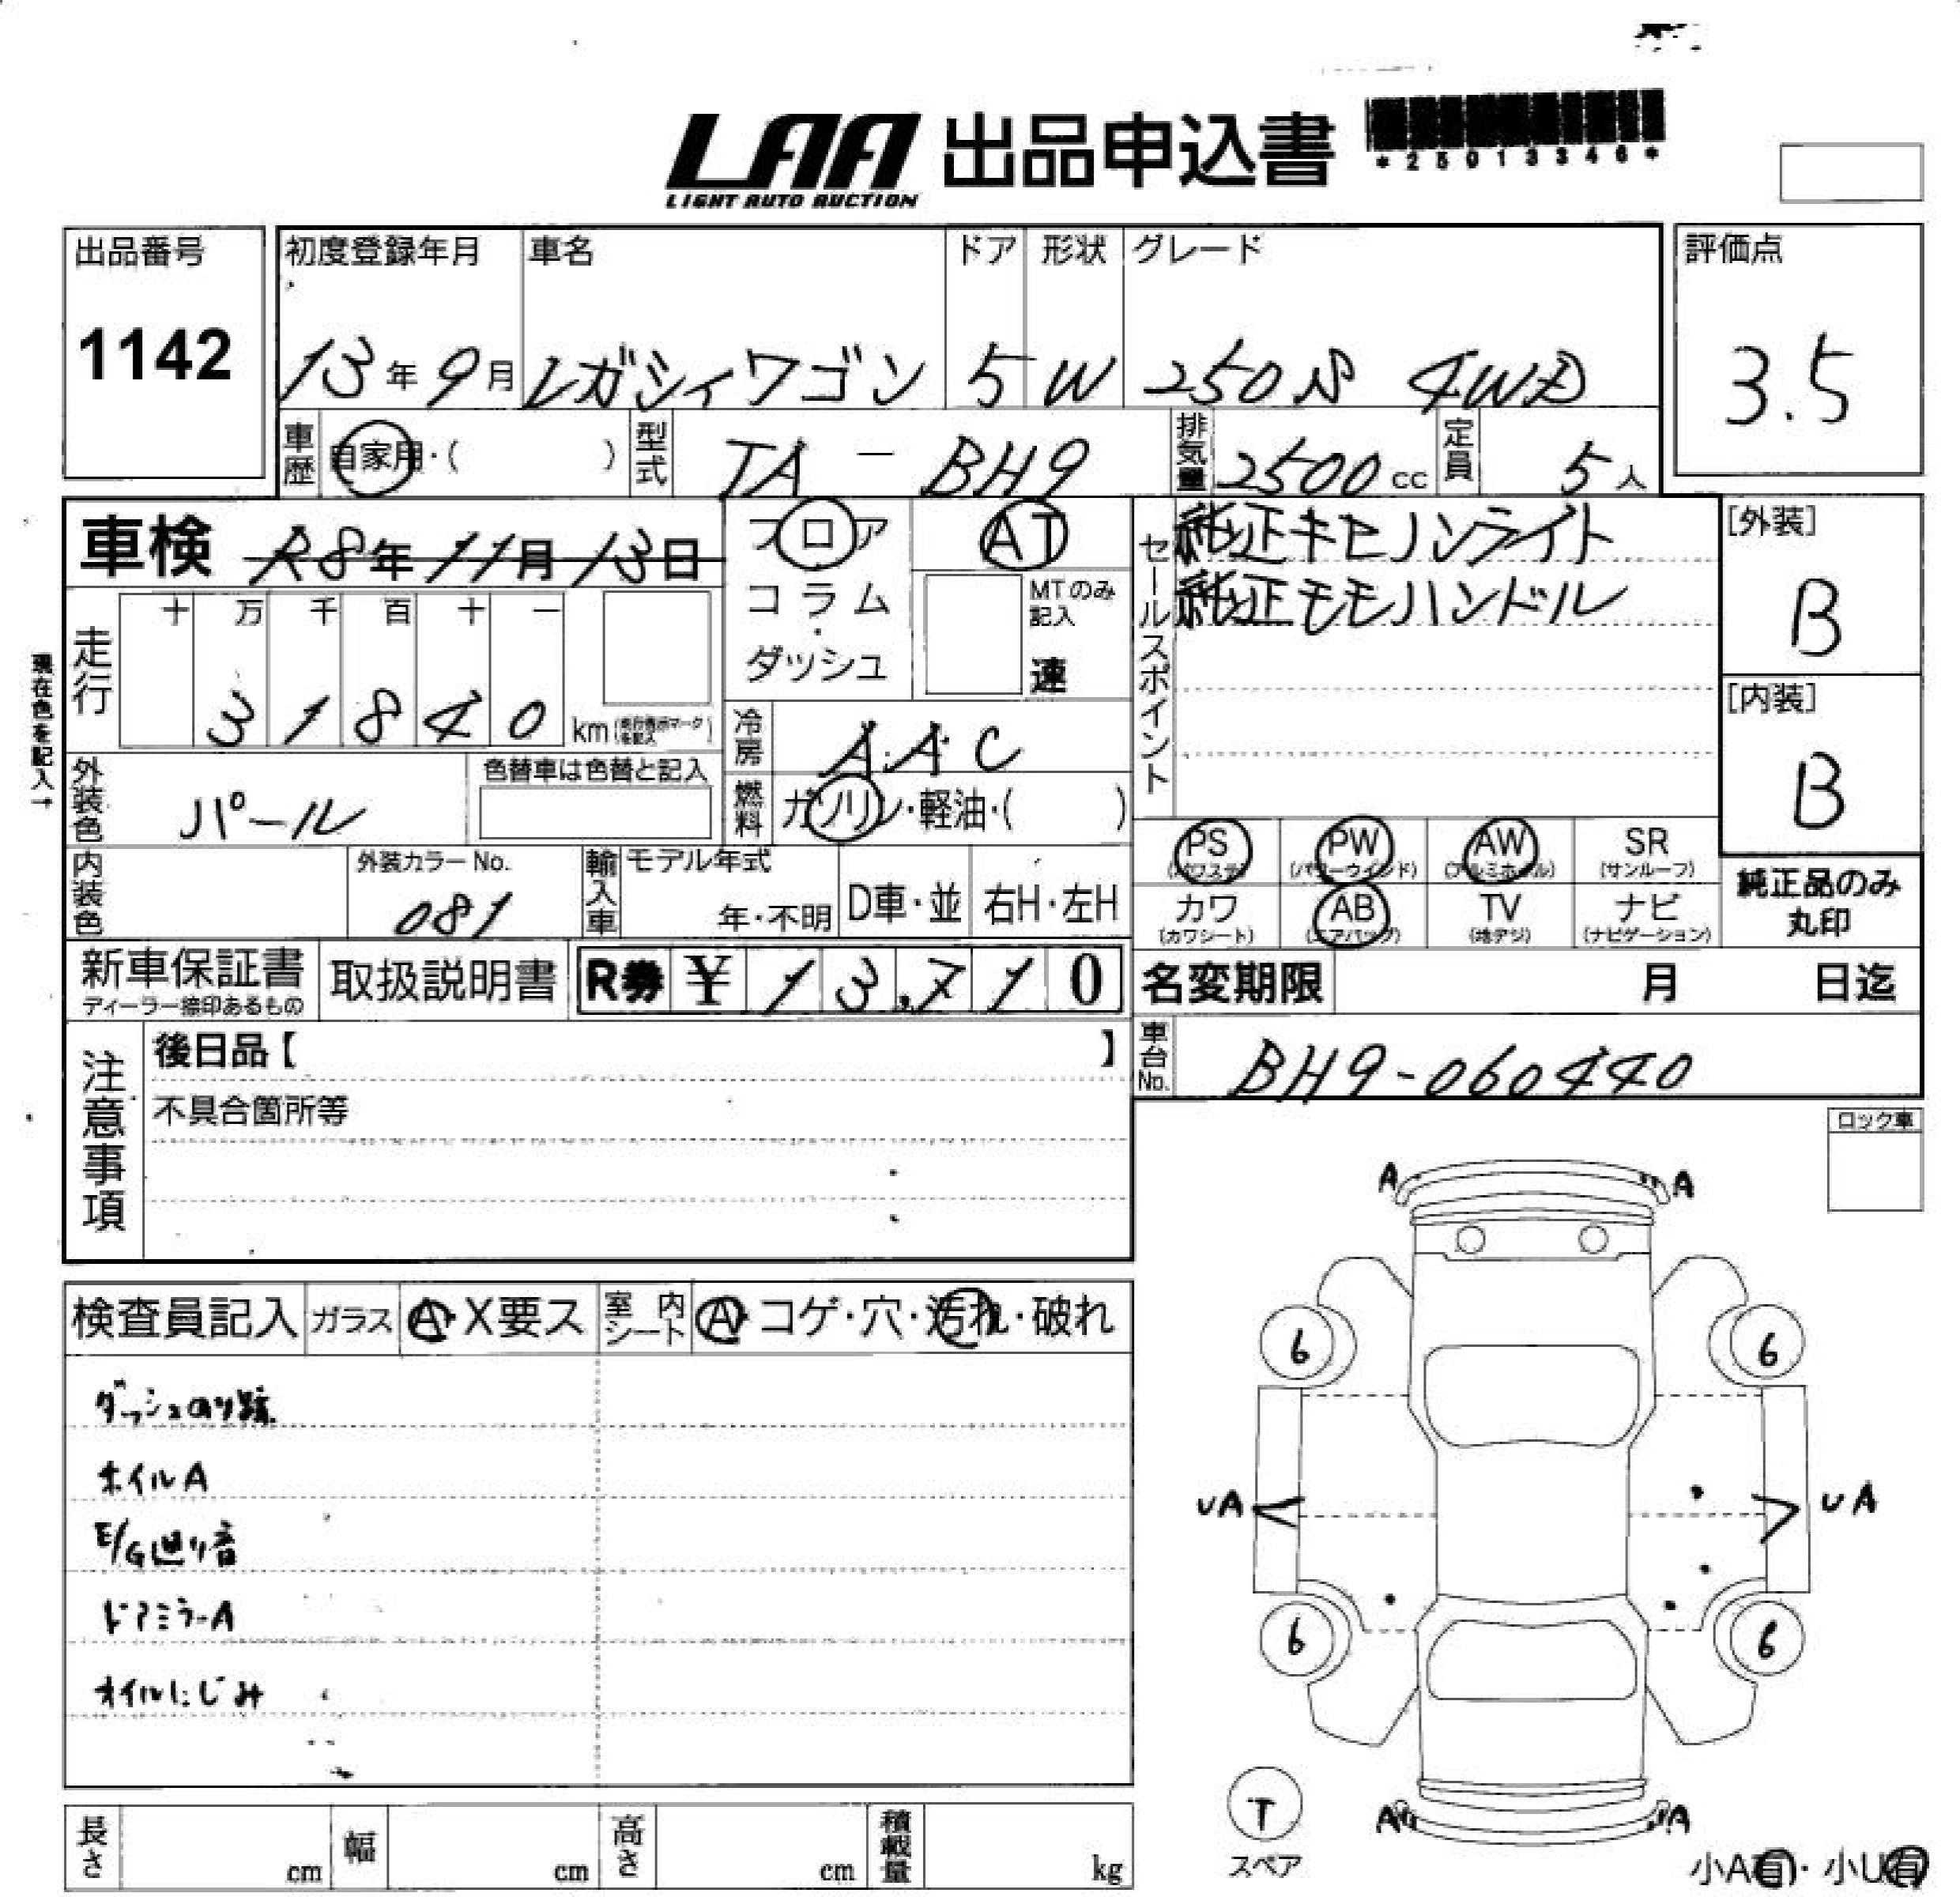 LAA 出品申込書
LIGHT AUTO AUCTION
*25013346*
出品番号
1142
初度登録年月 車名 ドア 形状 グレード
13年9月 レガシィワゴン 5 W 250S 4WD
評価点
3.5
車歴 自家用・( ) 型式 TA-BH9 排気量 2500cc 定員 5人
車検 R8年11月13日
フロア
コラム
・
ダッシュ
AT
MTのみ
記入
速
セールスポイント
純正キセノンライト
純正モモハンドル
[外装]
B
[内装]
B
現在色を記入→
走行
十 万 千 百 十 一
3 1 8 4 0 km
冷房 AAC
外装色 パール
色替車は色替と記入
燃料 ガソリン・軽油・( )
PS AW SR
(パワステ) (アルミホイル) (サンルーフ)
PW
(パワーウインド)
カワ AB TV ナビ
(カワシート) (エアバッグ) (地デジ) (ナビゲーション)
純正品のみ
丸印
内装色
外装カラーNo.
081
輸入車 モデル年式
年・不明 D車・並 右H・左H
新車保証書
ディーラー捺印あるもの
取扱説明書
R券 ¥ 13,710
名変期限 月 日迄
車台No. BH9-060440
注意事項
後日品【 】
不具合箇所等
ロック車
検査員記入 ガラス A・X要ス 室内シート A・コゲ・穴・汚れ・破れ
ダッシュのり跡
ホイルA
E/G廻り音
ドアミラーA
オイルにじみ
A A
6 6
UA UA
6 6
T
スペア
A A
小A有・小U有
長さ cm 幅 cm 高さ cm 積載量 kg